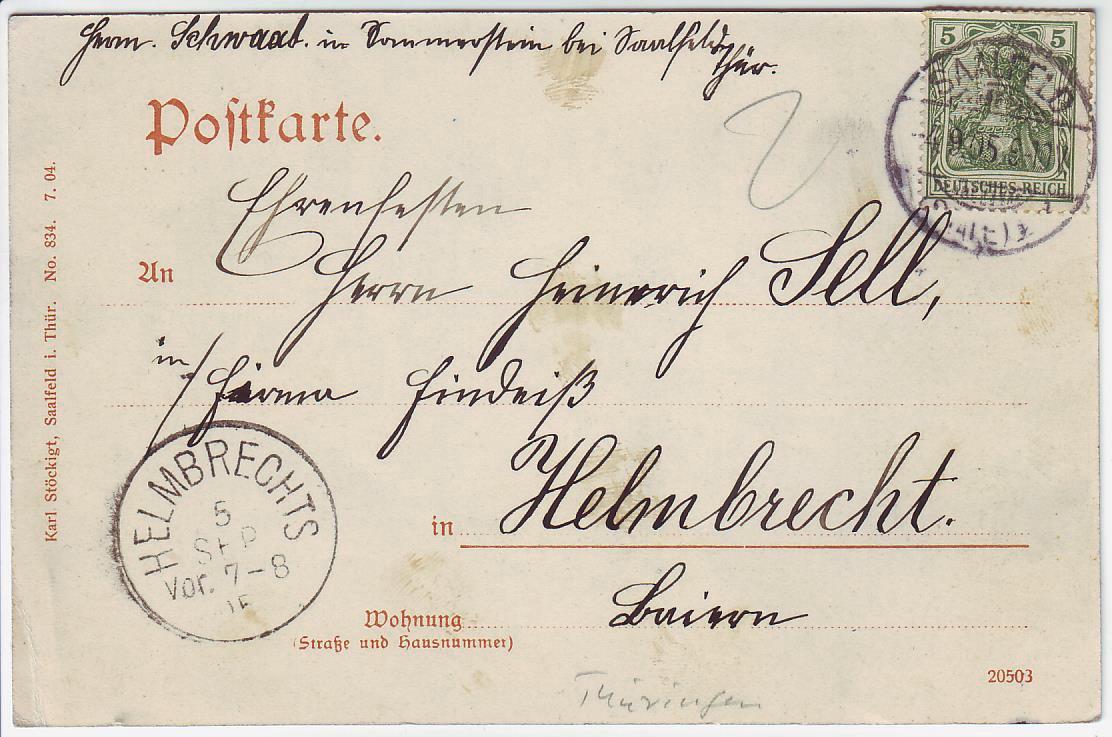 Herm. Schwaab. in Sommerstein bei Saalfeld
Thür.
5 5
DEUTSCHES REICH
SAALFELD
4.9.05.9-10
(SAALE)
Postkarte.
Ehrenfesten
An Herrn Heinerich Sell,
in/Firma Findeiß
in Helmbrecht.
Baiern
HELMBRECHTS
5
SEP
Vor. 7-8
05
Wohnung
(Straße und Hausnummer)
20503
Thüringen
Karl Stöckigt, Saalfeld i. Thür. No. 834. 7. 04.